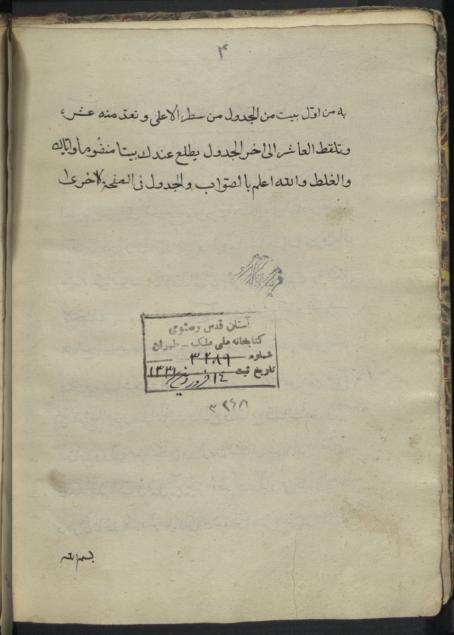 ٣
به من اوّل بيت من الجدول من سطر الاعلى و تعد منه عشره
وتلقط العاشر الى اخر الجدول يطلع عندك بيتا منظوما واياك
والغلط والله اعلم بالصواب والجدول فى الصفحة الاخرى
آستان قدس رضوی
کتابخانه ملی ملک - طهران
شماره ٣٢٨٩
تاریخ ثبت ١٤ فروردین ١٣٣١
٣٢٤٨
بسم الله